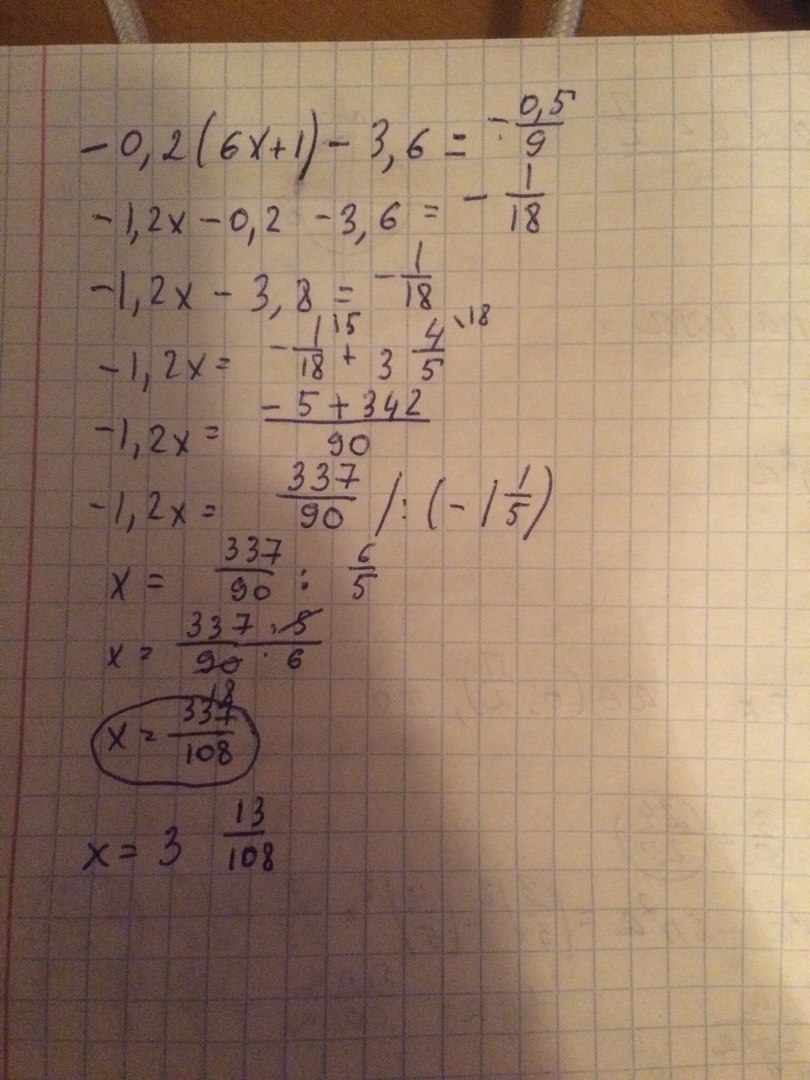 -0,2(6x+1)-3,6 = -0,5/9
-1,2x-0,2 -3,6 = -1/18
-1,2x - 3,8 = -1/18
-1,2x = -1/18 \5 + 3 4/5 \18
-1,2x = (-5+342)/90
-1,2x = 337/90 /:(-1 1/5)
x = 337/90 : 6/5
x = (337·5)/(90·6)
18
x = 337/108
x = 3 13/108